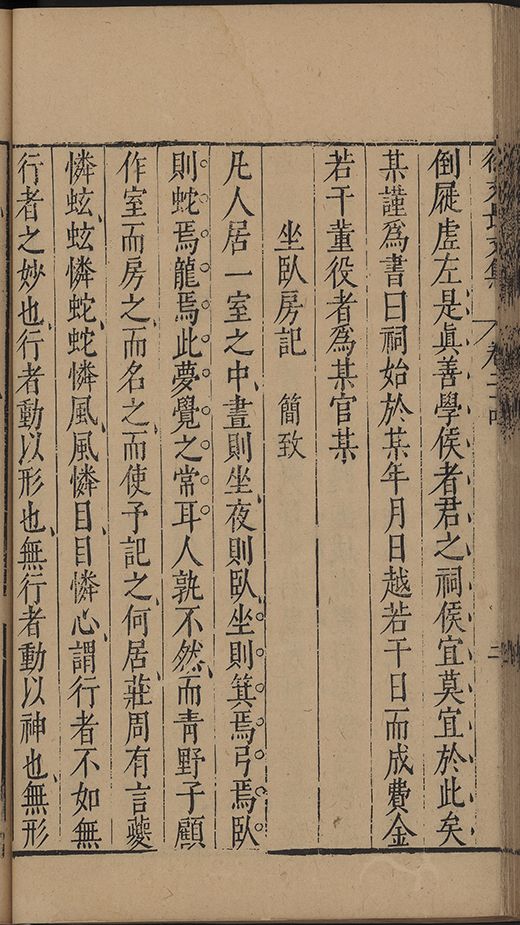 徐文長文集 卷二十四 二
倒屣虛左是真善學侯者君之祠侯宜莫宜於此矣
某謹為書曰祠始於某年月日越若干日而成費金
若干董役者為某官某
坐臥房記 簡致
凡人居一室之中、晝則坐、夜則臥、坐則箕焉弓焉臥
則蛇焉龍焉此夢覺之常耳人孰不然、而青野子顧
作室而房之、而名之、而使予記之、何居、莊周有言夔
憐蚿、蚿憐蛇、蛇憐風、風憐目、目憐心、謂行者不如無
行者之妙也、行者動以形也、無行者動以神也、無形